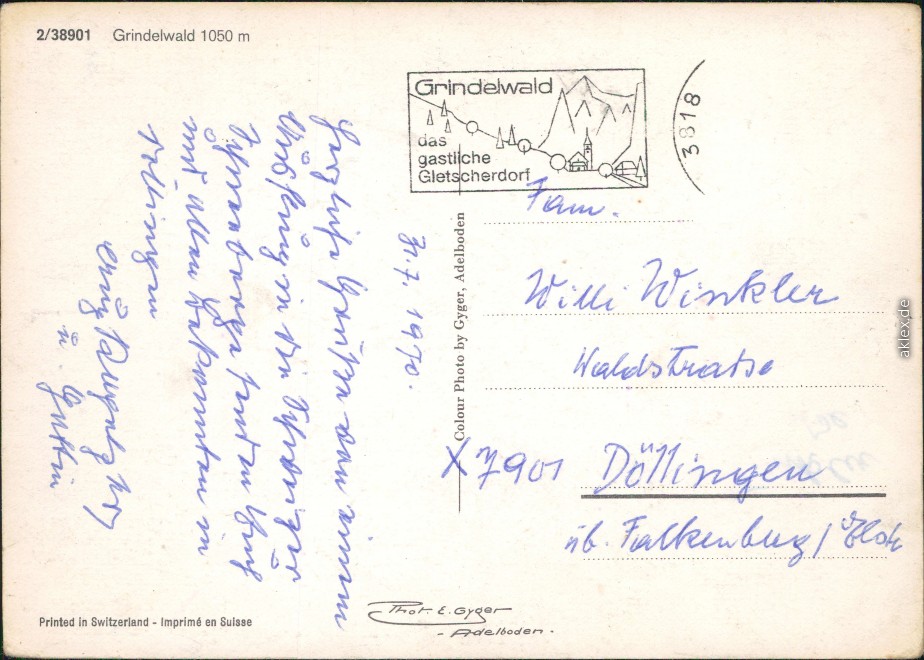 2/38901 Grindelwald 1050 m
Grindelwald
das
gastliche
Gletscherdorf
3818
31.7.1970.
Herzliche Grüße von einem
Ausflug in die Schweizer
senden Euch
und allen Bekannten in
Döllingen
Gattin
Colour Photo by Gyger, Adelboden
Fam.
Willi Winkler
Waldstraße
X 7901 Döllingen
üb. Falkenberg/Elst.
Printed in Switzerland - Imprimé en Suisse
Phot. E. Gyger
- Adelboden -
aklex.de